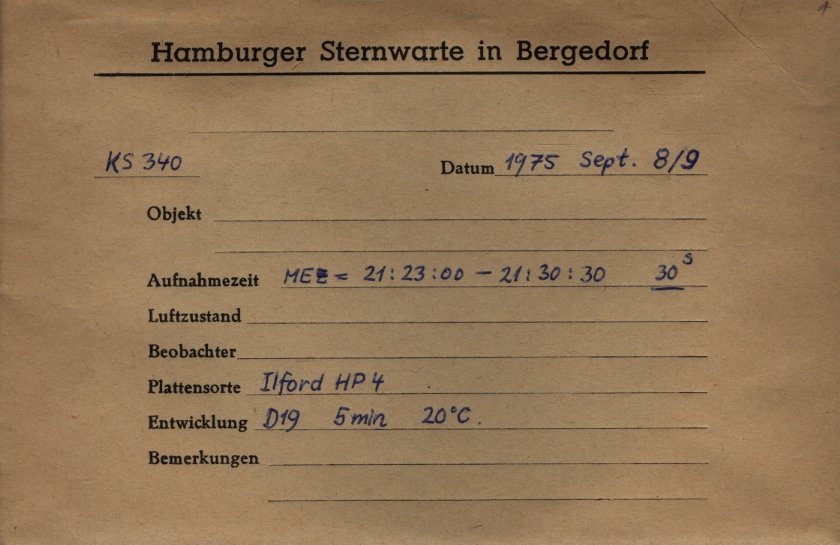 Hamburger Sternwarte in Bergedorf
KS 340 Datum 1975 Sept. 8/9
Objekt
Aufnahmezeit MEZ = 21:23:00 – 21:30:30 30s
Luftzustand
Beobachter
Plattensorte Ilford HP4
Entwicklung D19 5min 20°C.
Bemerkungen